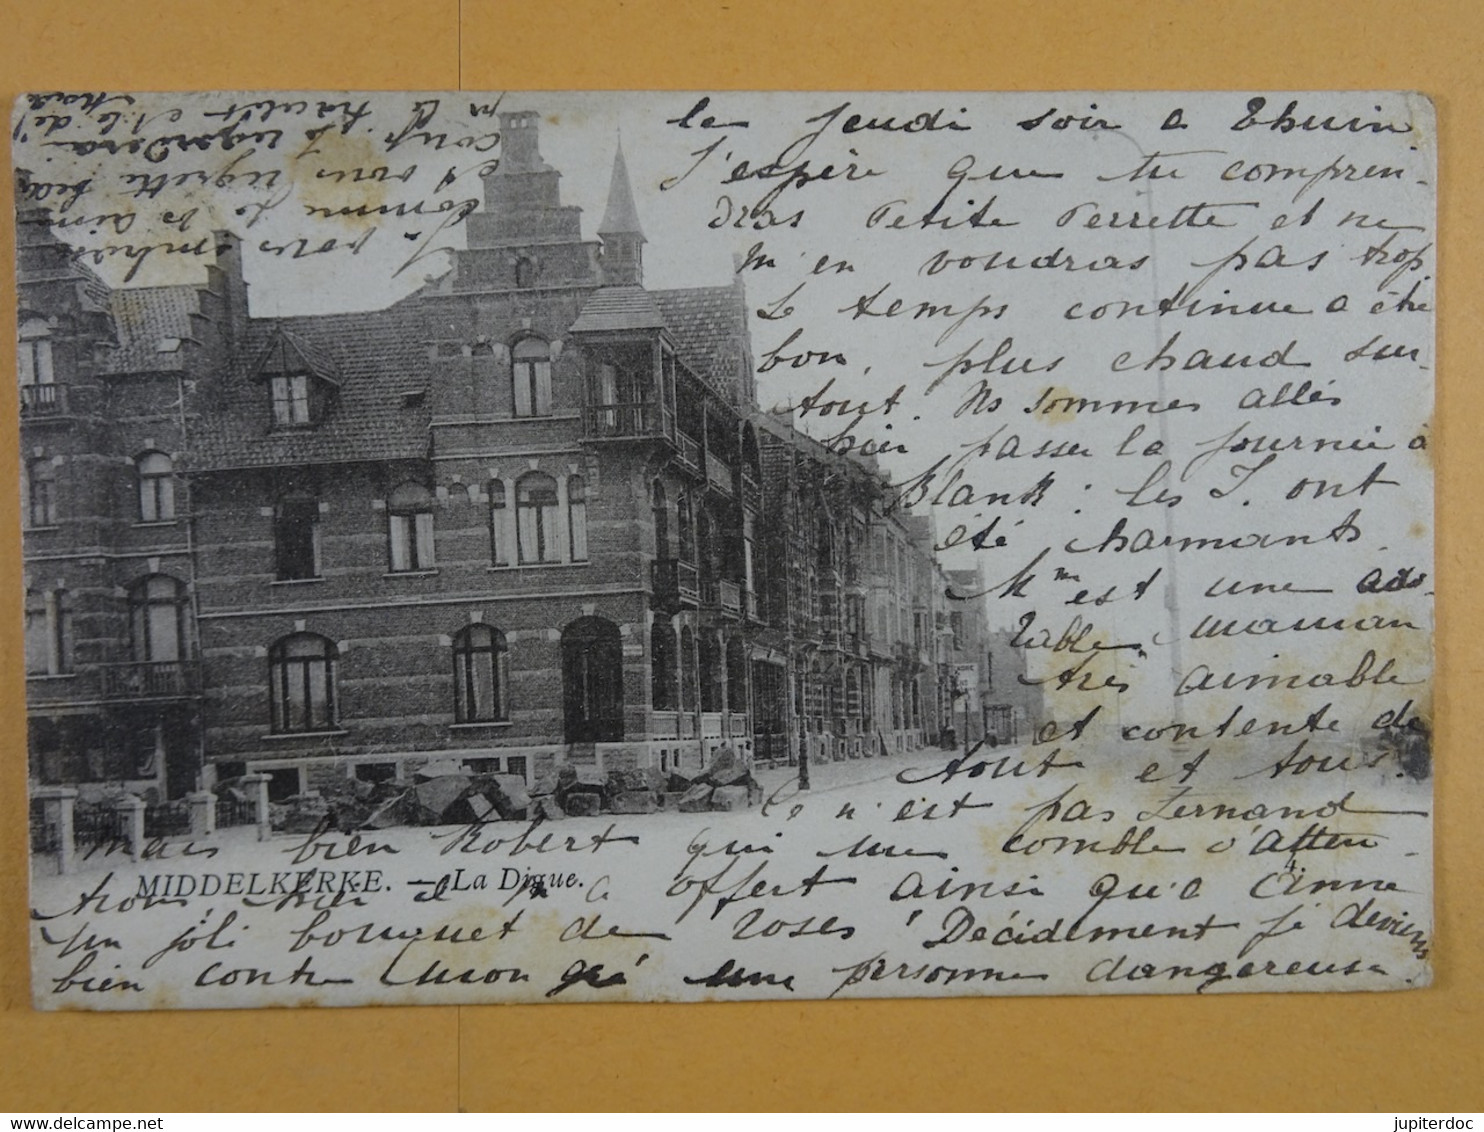 le jeudi soir a Thuin
J'espère que tu compren-
dras Petite Perrette et ne
m'en voudras pas trop.
Le temps continue a être
bon, plus chaud sur-
tout. Ns sommes allés
hier passer la journée à
Blank : les J. ont
été charmants.
Mme est une ado-
rable maman
très aimable
et contente de
tout et tous.
Ce n'est pas Fernand
mais bien Robert qui me comble d'atten-
MIDDELKERKE. — La Digue.
4.
tions hier il m'a offert ainsi qu'a Anne
un joli bouquet de roses ! Décidement je deviens
bien contre mon gré une personne dangereuse.
Je vous embrasse
comme je vs aime
et vous regrette
coup. regardera